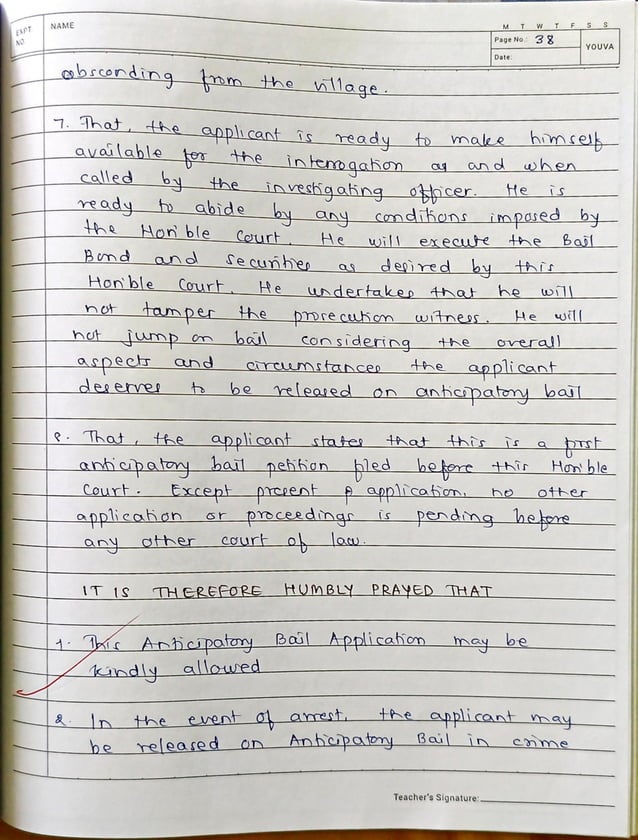 EXPT NO.
NAME
M T W T F S S
Page No.: 38
YOUVA
Date:
absconding from the village.
7. That, the applicant is ready to make himself
available for the interrogation as and when
called by the investigating officer. He is
ready to abide by any conditions imposed by
the Hon'ble Court. He will execute the Bail
Bond and securities as desired by this
Hon'ble Court. He undertakes that he will
not tamper the prosecution witness. He will
not jump on bail considering the overall
aspects and circumstances the applicant
deserves to be released on anticipatory bail
8. That, the applicant states that this is a first
anticipatory bail petition filed before this Hon'ble
Court. Except present application, no other
application or proceedings is pending before
any other court of law.
IT IS THEREFORE HUMBLY PRAYED THAT
1. This Anticipatory Bail Application may be
kindly allowed
2. In the event of arrest, the applicant may
be released on Anticipatory Bail in crime
Teacher's Signature: